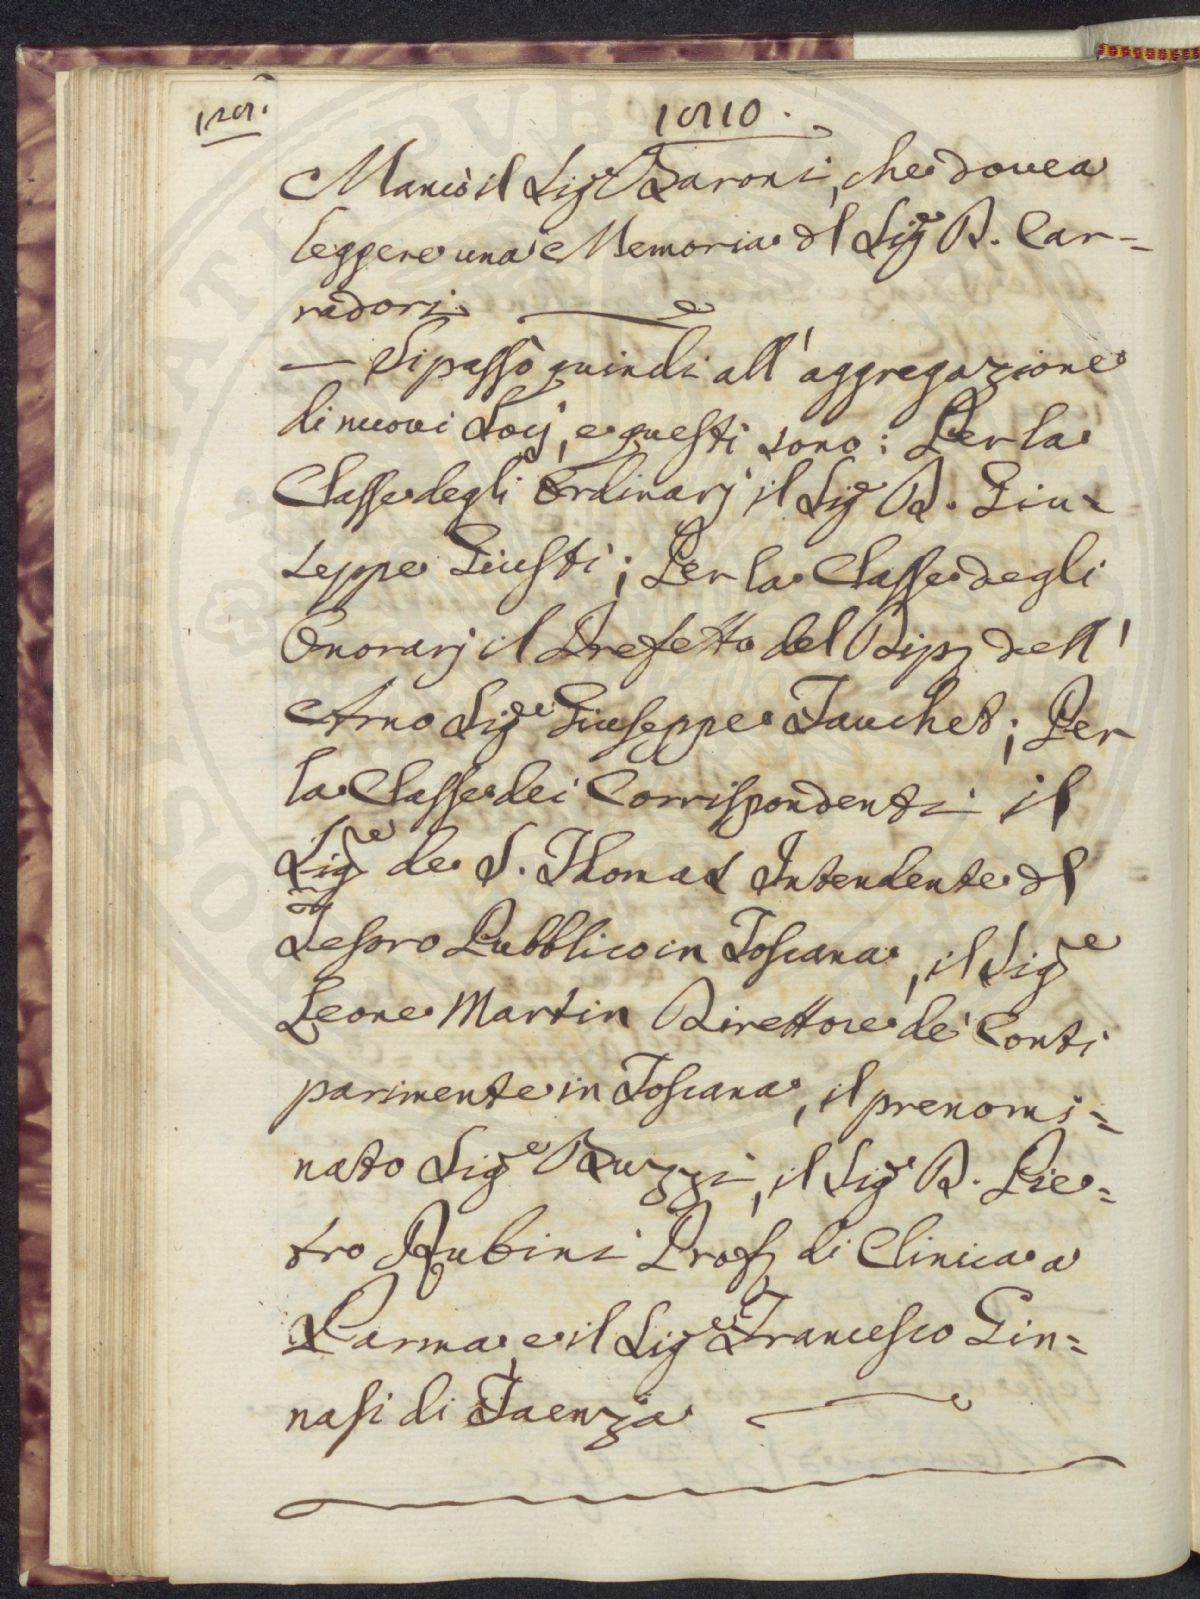 1810.
Mancò il Sig.e Baroni, che dovea
leggere una Memoria del Sig.e D. Car=
radori.
— Si passò quindi all' aggregazione
di nuovi Socj, e questi sono: Per la
Classe degli Ordinarj il Sig.e D. Giu=
seppe Giusti; Per la Classe degli
Onorarj il Prefetto del Dip. dell'
Arno Sig.e Giuseppe Fauchet; Per
la Classe dei Corrispondenti il
Sig.e de S. Thomas Intendente del
Tesoro Pubblico in Toscana, il Sig.e
Leone Martin Direttore de' Conti
parimente in Toscana, il prenomi=
nato Sig.e Buzzi, il Sig.e D. Pie=
tro Rubini Prof. di Clinica a
Parma, e il Sig.e Francesco Gin=
nasi di Faenza